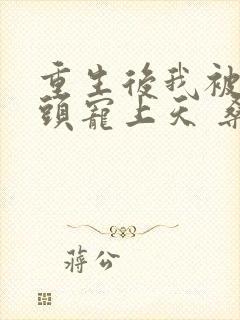 重生後我被
頭寵上天
蔣公